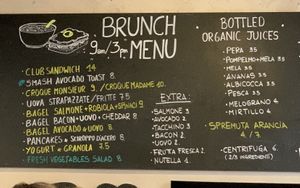 BRUNCH
9am/3pm MENU
• CLUB SANDWICH 14
• SMASH AVOCADO TOAST 8.
• CROQUE MONSIEUR 9. / CROQUE MADAME 10.
• UOVA STRAPAZZATE/FRITTE 7.5
• BAGEL SALMONE+ROBIOLA+SPINACI 9
• BAGEL BACON+UOVO+CHEDDAR 8.
• BAGEL AVOCADO+UOVO 8.
• PANCAKES+SCIROPPO D'ACERO 8.
• YOGURT+GRANOLA 7.5
• FRESH VEGETABLES SALAD 8.
EXTRA:
SALMONE 3
AVOCADO 2
TACCHINO 3
BACON 2
UOVO 2
FRUTTA FRESCA 2.
NUTELLA 1.
BOTTLED
ORGANIC JUICES
• PERA 3.5
• POMPELMO+MELA 3.5
• MELA 3.5
• ANANAS 3.5
• ALBICOCCA 3.5
• PESCA 3.5
• MELOGRANO 4
• MIRTILLO 4.
SPREMUTA ARANCIA
4 / 7.
• CENTRIFUGA 6.
(2/3 INGREDIENTI)